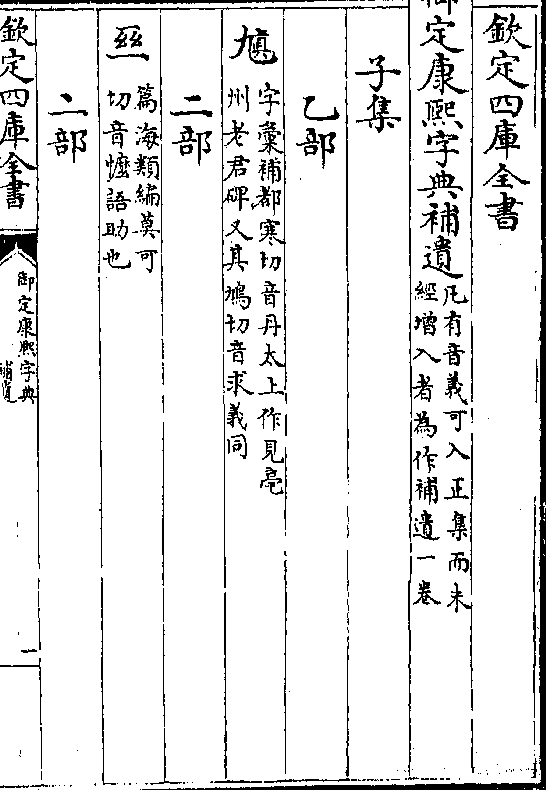 欽定四庫全書
御定康熙字典補遺
凡有音義可入正集而未
經增入者為作補遺一卷
子集
乙部
字彙補都寒切音丹太上作見亳
州老君碑又其鳩切音求義同
二部
篇海類編莫可
切音懡語助也
亠部
欽定四庫全書
御定康熙字典
補遺
一